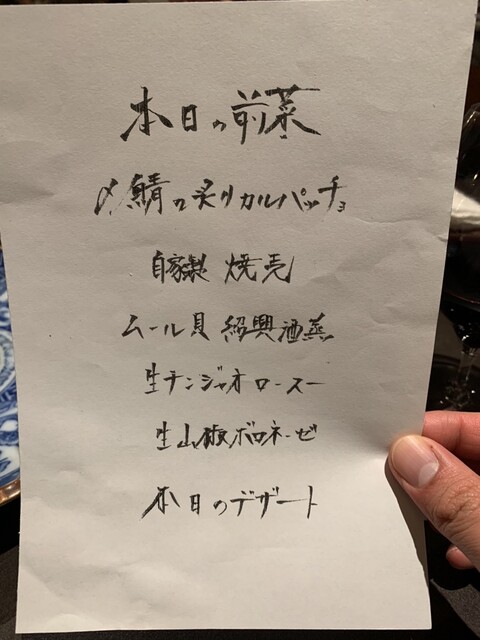 本日の前菜
〆鯖の炙りカルパッチョ
自家製 焼売
ムール貝 紹興酒蒸
生チンジャオロースー
生山椒ボロネーゼ
本日のデザート